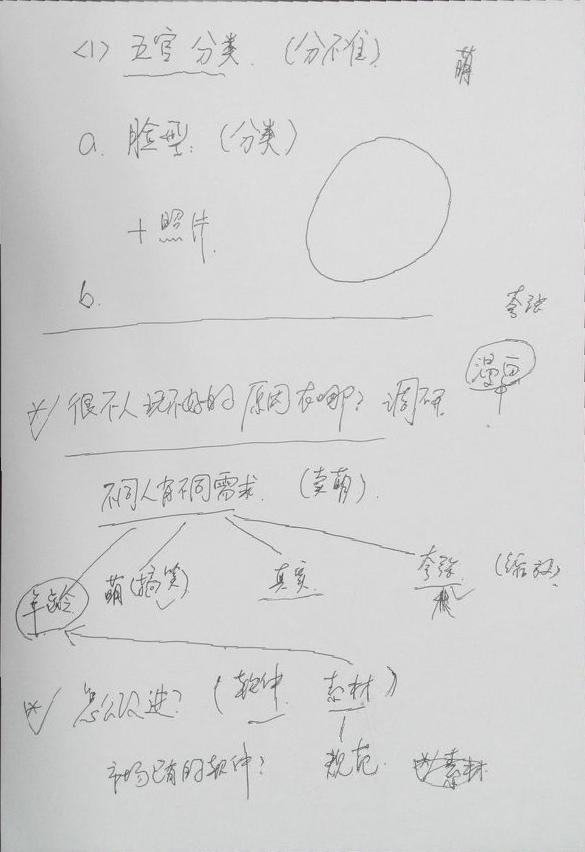 <1> 五官分类. (分不准) 萌
a. 脸型: (分类)
+照片.
b.
夸张
漫画
很不人玩不好的原因在哪? 调研
不同人有不同需求. (卖萌).
年龄 萌(搞笑) 真实 夸张 (缩放).
怎么改进? (软件 素材)
市场已有的软件? 规范 素材